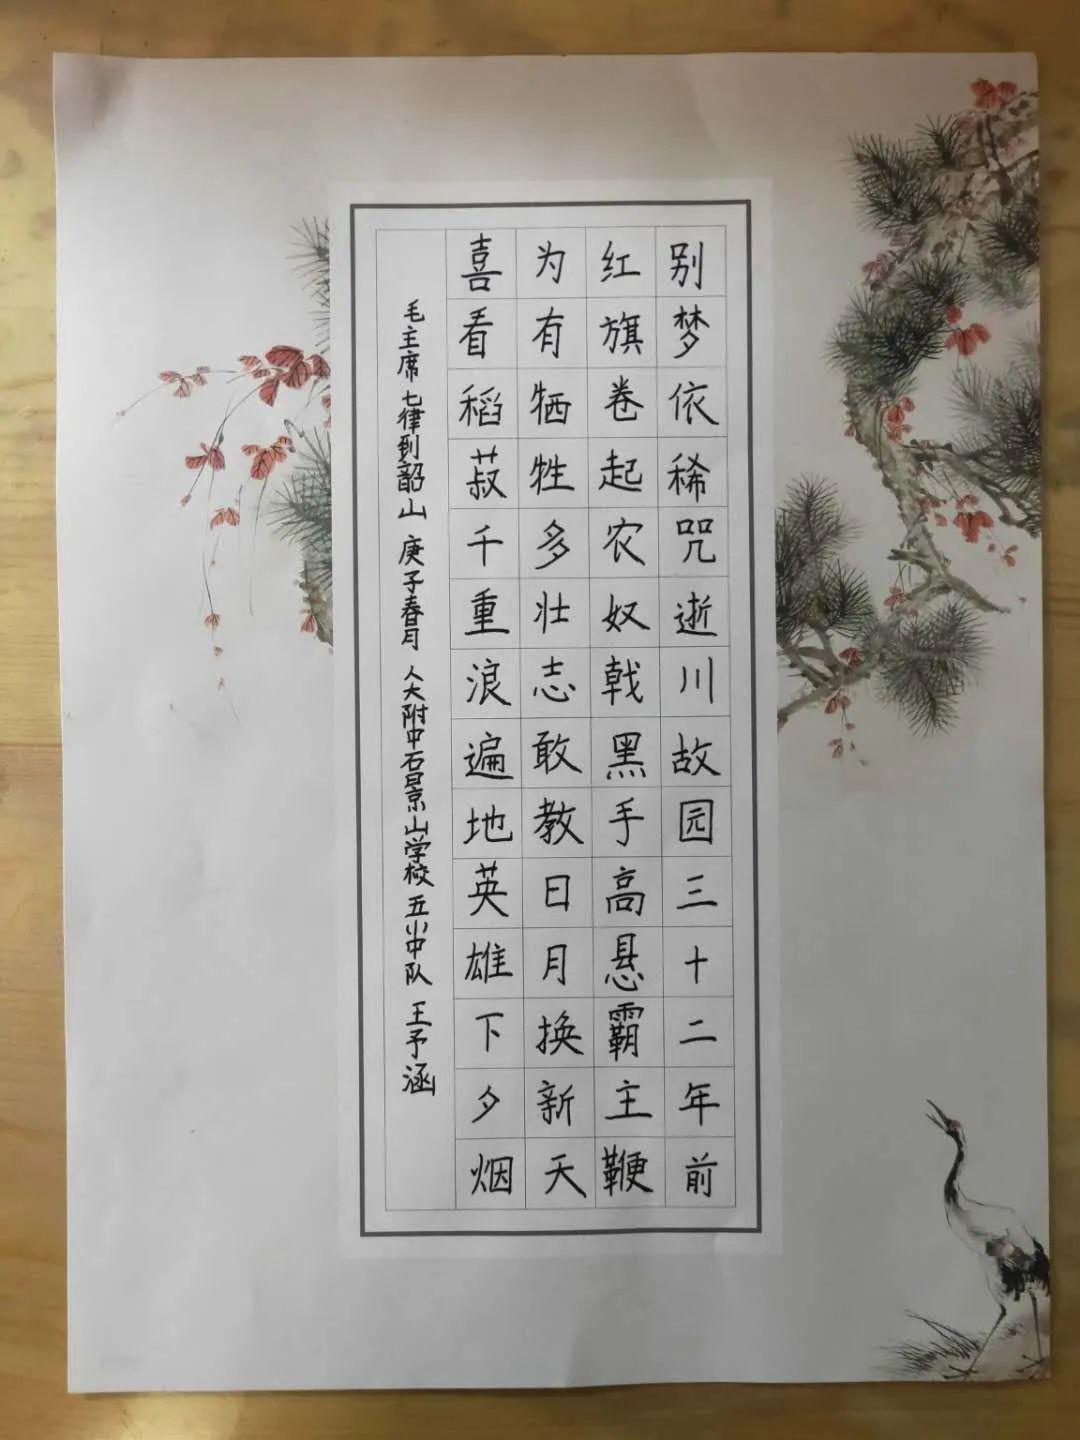 别梦依稀咒逝川故园三十二年前
红旗卷起农奴戟黑手高悬霸主鞭
为有牺牲多壮志敢教日月换新天
喜看稻菽千重浪遍地英雄下夕烟
毛主席 七律到韶山 庚子春月 人大附中石景山学校 五小中队 王予涵